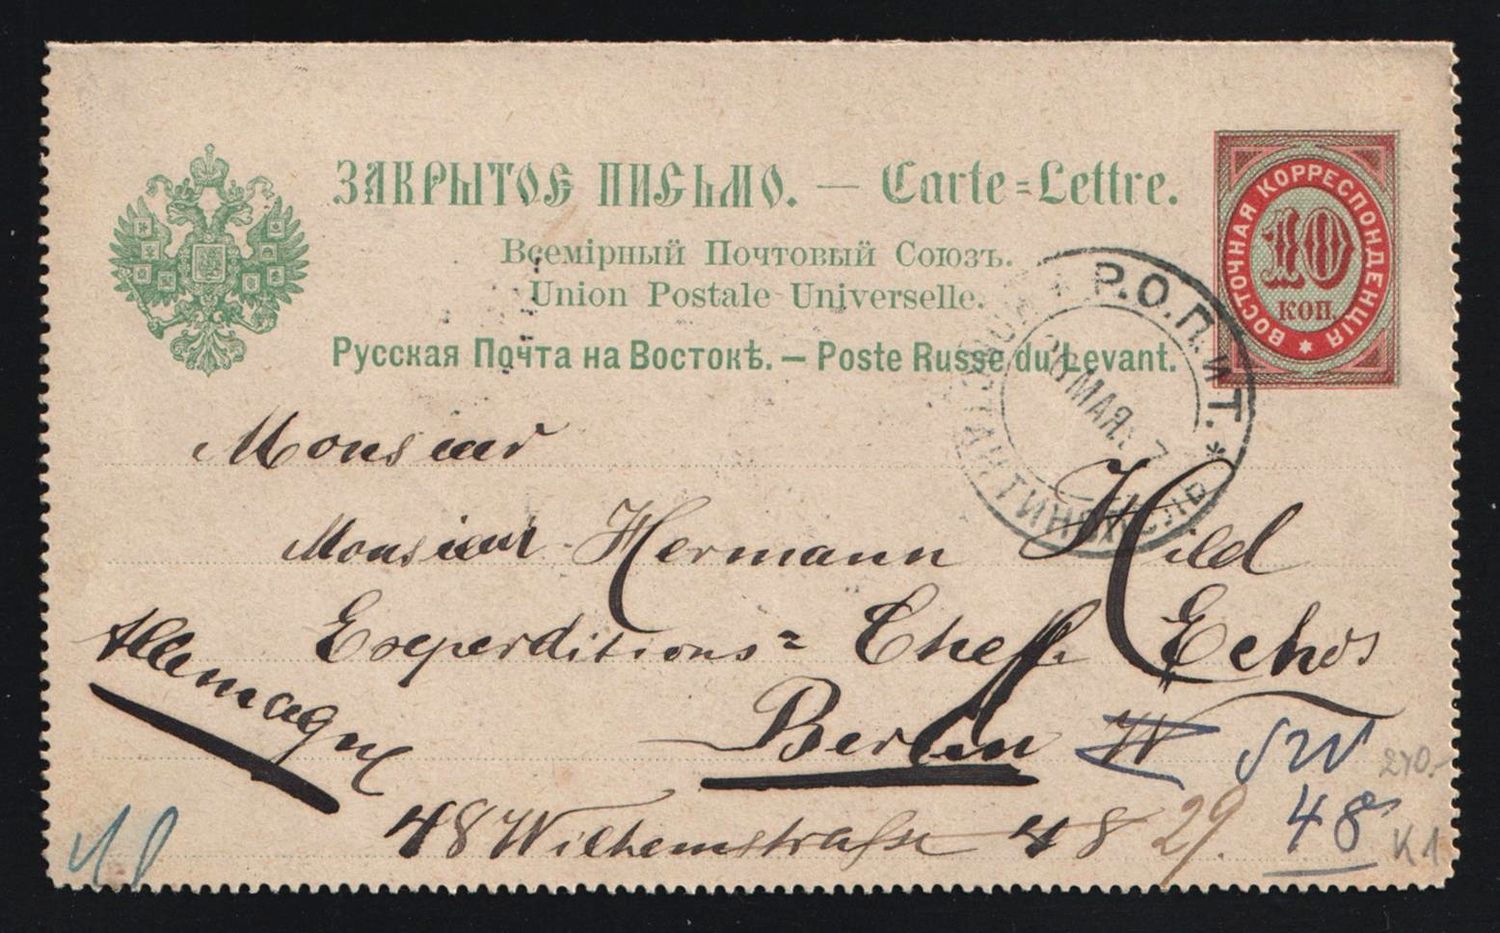 ЗАКРЫТОЕ ПИСЬМО. — Carte=Lettre.
Всемірный Почтовый Союзъ.
Union Postale Universelle.
Русская Почта на Востокѣ. — Poste Russe du Levant.
ВОСТОЧНАЯ КОРРЕСПОНДЕНЦІЯ
10
КОП.
Р.О.П.иТ.
26 МАЯ. 7
Monsieur
Monsieur Hermann Hild
Experditions= Cheff Echos
Allemagne
Berlin W SW
48 Wilhemstrasse 48 29. 48
270.-
K1